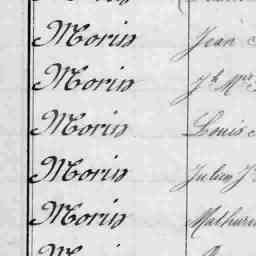 Morin Jean
Morin Jh Mie
Morin Louis
Morin Julien J
Morin Mathurin